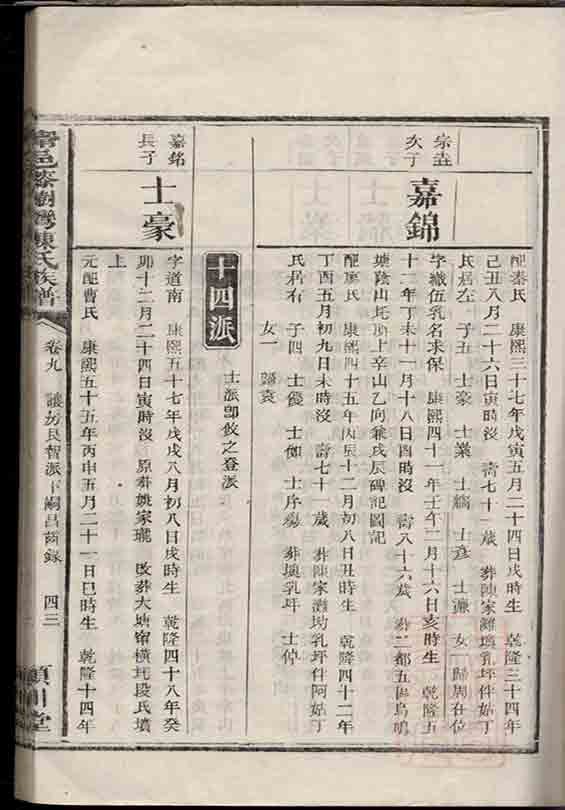 配秦氏 康熙三十七年戊寅五月二十四日戌時生 乾隆三十四年
己丑八月二十六日寅時沒 壽七十一歲 葬陳家灘塡乳坪伴姑丁
氏居左 子五 士豪 士業 士 士彥 士謙 女一 歸周在位
宗
次子
嘉錦
字織伍乳名求保 康熙四十一年壬午二月十六日亥時生 乾隆五
十二年丁未十一月十八日酉時沒 壽八十六歲 葬二都五區烏鳴
塘陰山圫頂上辛山乙向兼戌辰碑記圖記
配廖氏 康熙四十五年丙辰十二月初八日丑時生 乾隆四十二年
丁酉五月初九日未時沒 壽七十一歲 葬陳家灘坳乳坪伴阿姑丁
氏居右 子四 士優 士 士序殤 葬塡乳坪 士仲
女一 歸袁
十四派
士派卽攸之登派
嘉銘
長子
士豪
字道南 康熙五十七年戊戌八月初八日戌時生 乾隆四十八年癸
卯十二月二十四日寅時沒 原葬姚家瓏 改葬大塘窰橫圫段氏墳
上
元配曹氏 康熙五十五年丙申五月二十一日巳時生 乾隆十四年
樹灣陳氏族譜 卷九 派下嗣昌齒錄 四三 潁川堂